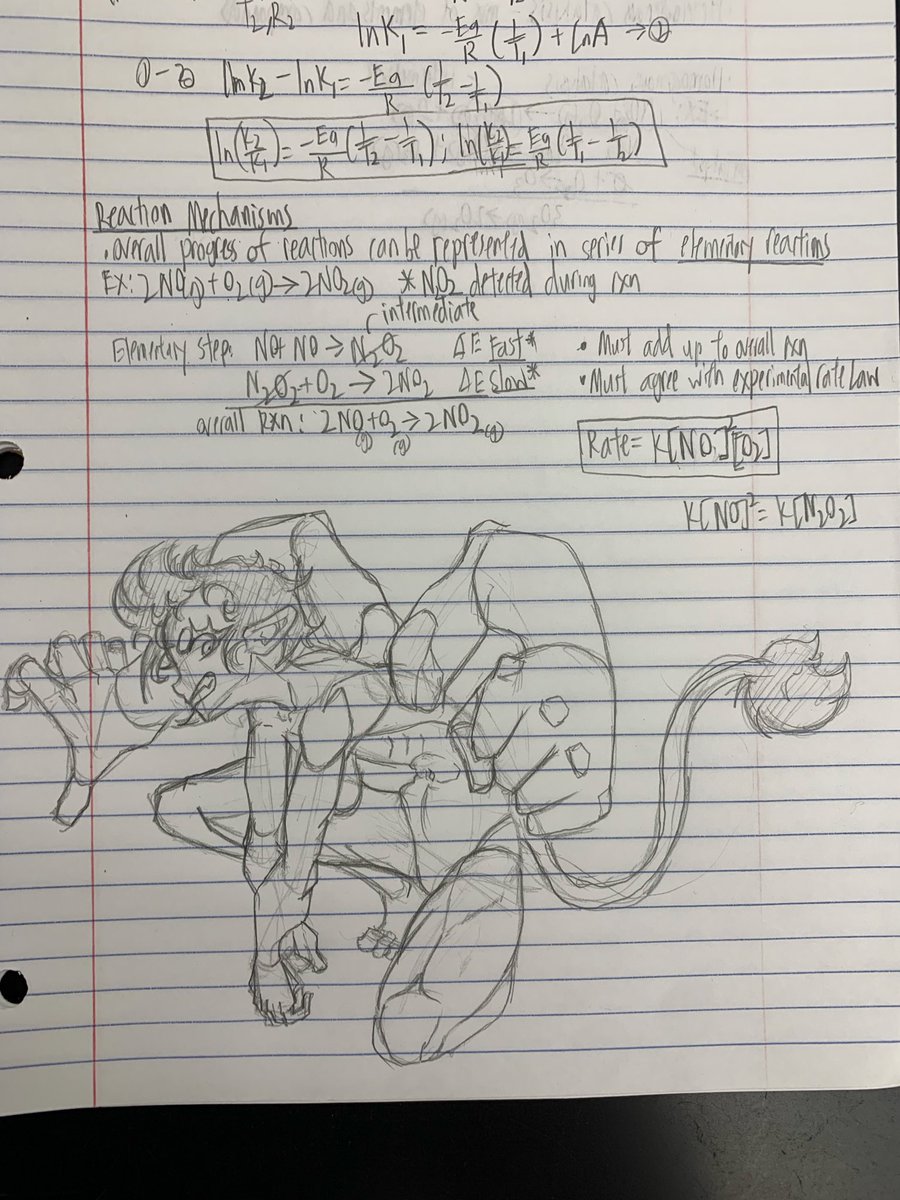 T2,R2
lnK₁ = -Ea/R (1/T₁) + lnA → ②
①-② lnK₂ - lnK₁ = -Ea/R (1/T₂ - 1/T₁)
ln(K₂/K₁) = -Ea/R (1/T₂ - 1/T₁); ln(K₂/K₁) = Ea/R (1/T₁ - 1/T₂)
Reaction Mechanisms
• overall progress of reactions can be represented in series of elementary reactions
Ex: 2NO(g) + O₂(g) → 2NO₂(g) * N₂O₂ detected during rxn
intermediate
Elementary Step: NO + NO → N₂O₂ ΔE Fast* • Must add up to overall rxn
N₂O₂ + O₂ → 2NO₂ ΔE Slow* • Must agree with experimental rate Law
overall Rxn: 2NO(g) + O₂(g) → 2NO₂(g)
Rate = K[NO]²[O₂]
K[NO]² = K[N₂O₂]